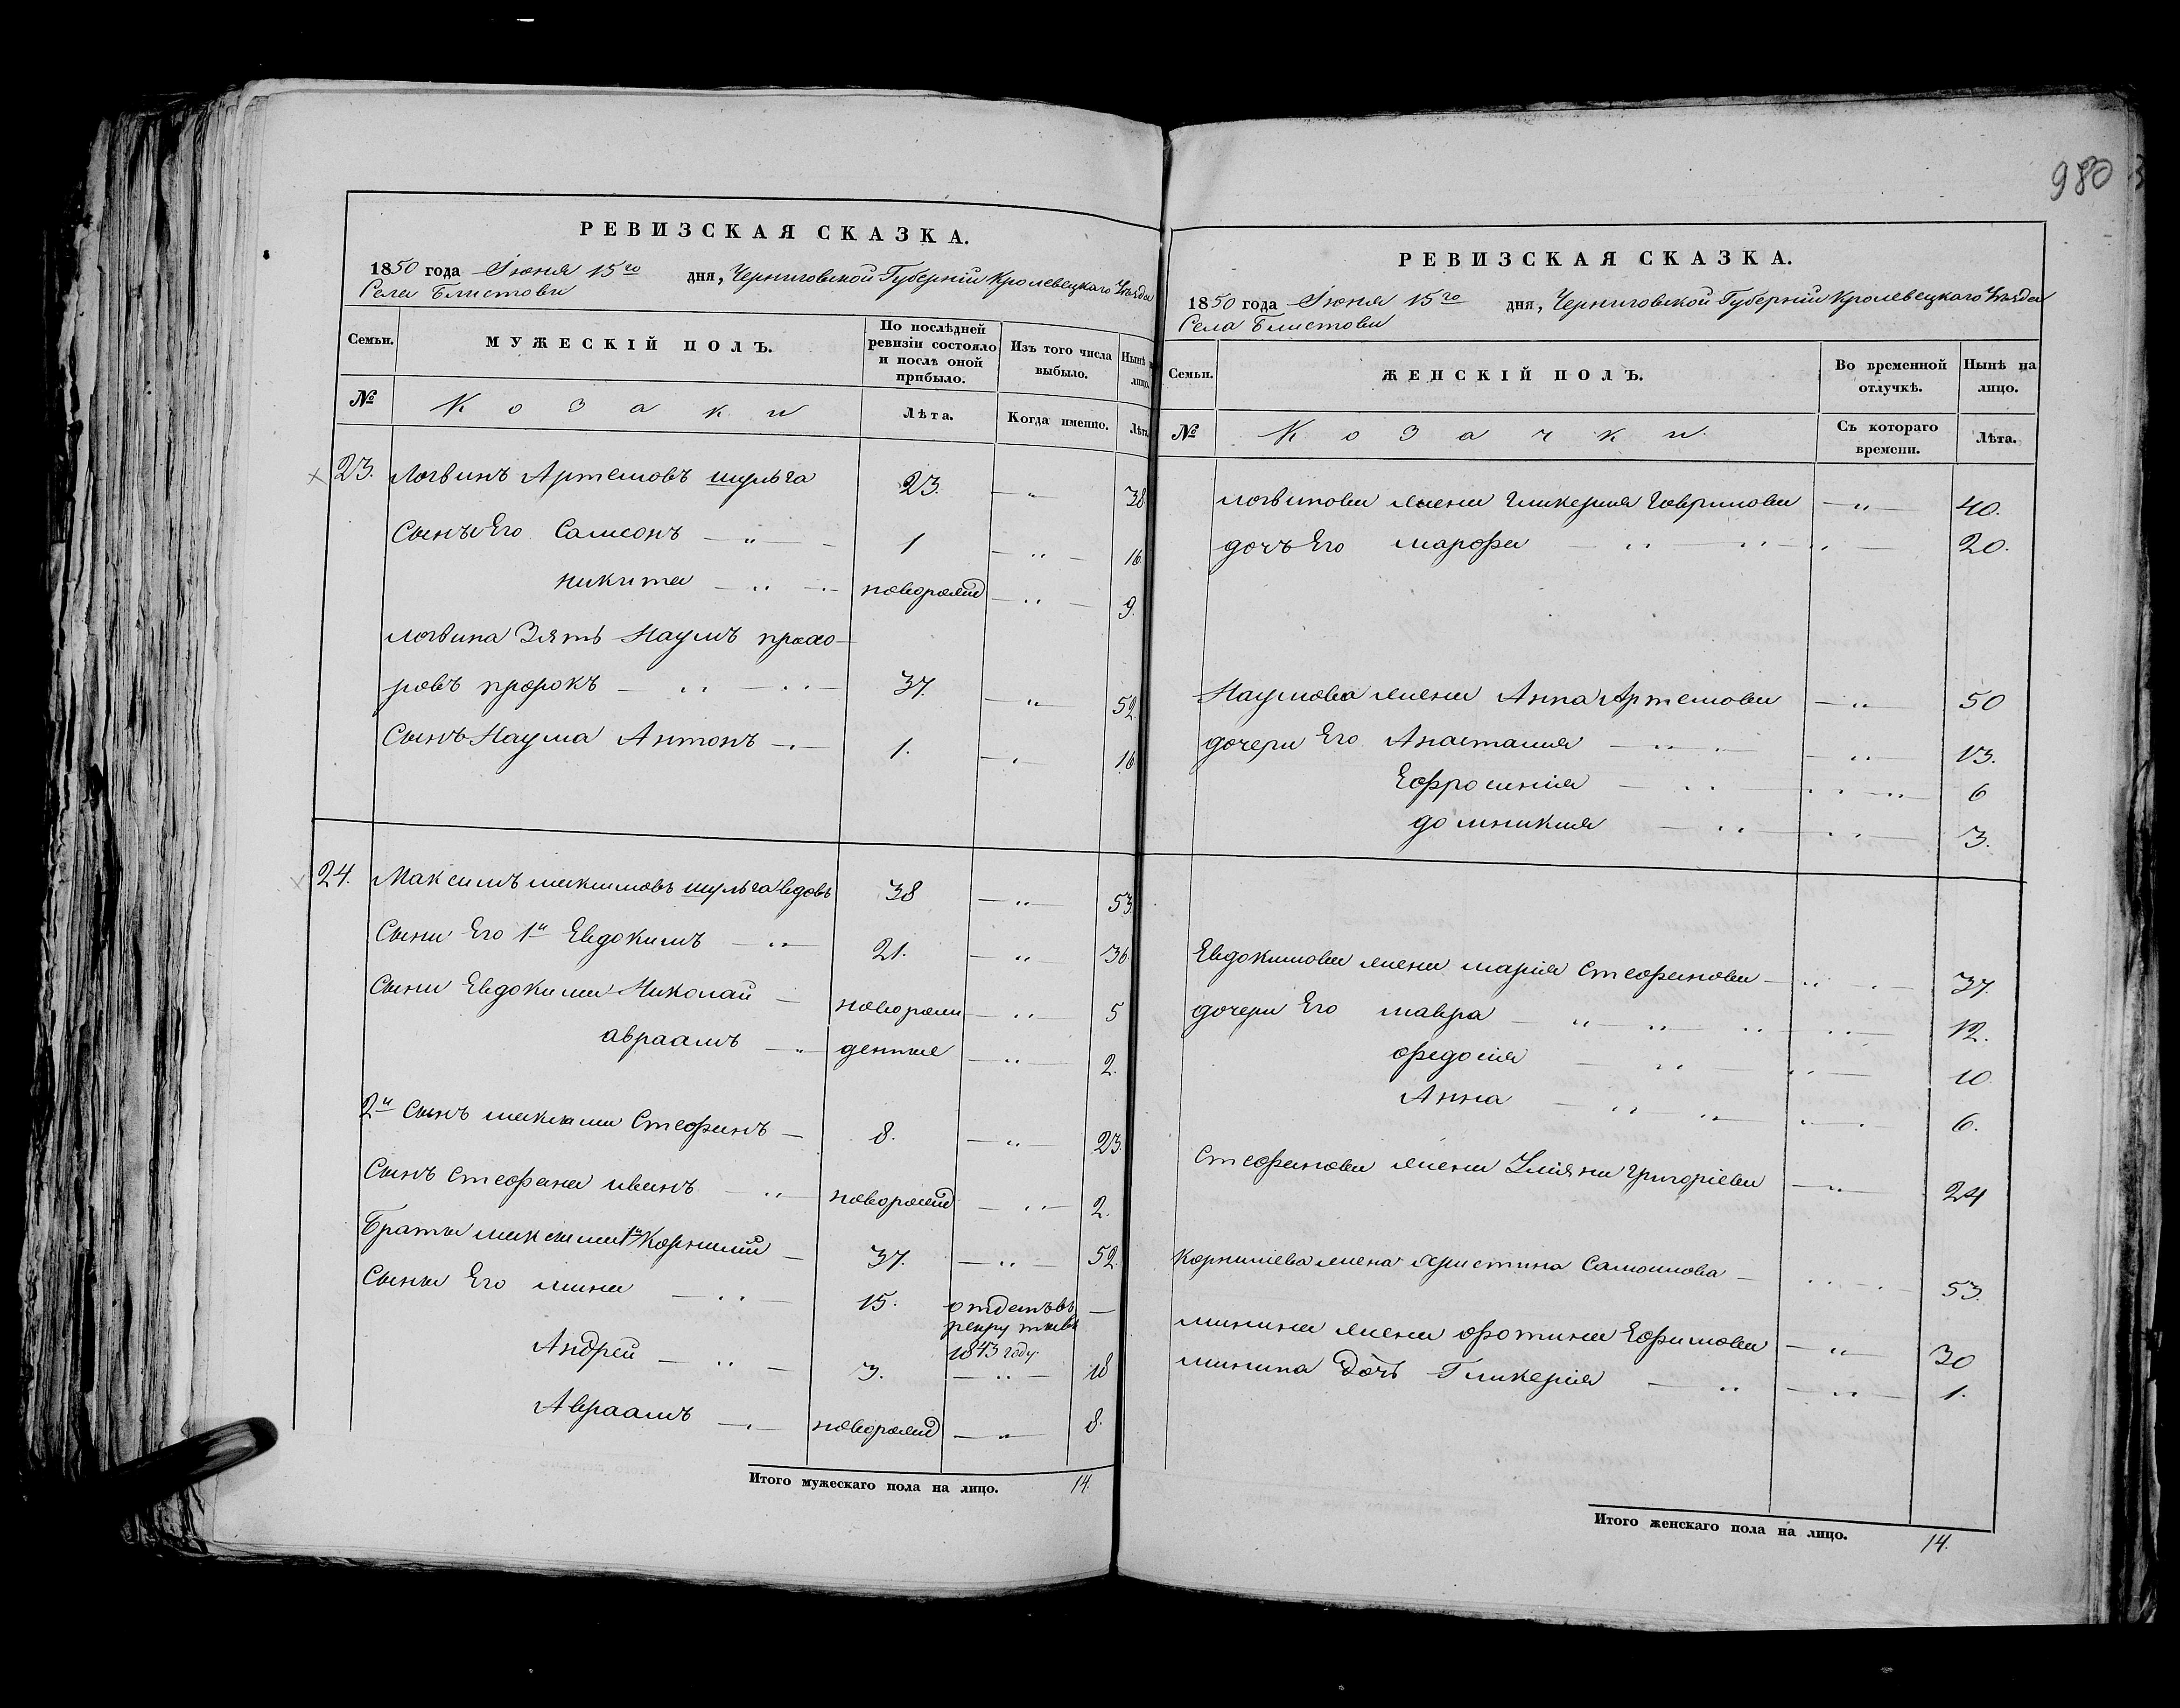 980
РЕВИЗСКАЯ СКАЗКА.
1850 года Іюня 15го дня, Черниговской Губерніи Кролевецкаго Уезда
Села Блистови
Семьи. МУЖЕСКІЙ ПОЛЪ. По послѣдней ревизіи состояло и послѣ оной прибыло. Изъ того числа выбыло. Нынѣ на лицо.
№ Козаки Лѣта. Когда именно. Лѣта
23. Логвинъ Артемовъ шульга 23. — " — 38
Сынъ Его Самсонъ — " — 1 — " — 16.
никита — " — новорожд — " — 9.
логвина Зять Наумъ прохо-
ровъ пророкъ — " — " — 37. — " — 52.
Сынъ Наума Антонъ — " — 1. — " — 16
24. Максимъ максимовъ шульга вдовъ 38 — " — 53.
Сыни Его 1й Евдокимъ — " — 21. — " — 36.
Сыни Евдокима Николай — новорож — " — 5
авраамъ — " — денные — " — 2.
2й Сынъ максима Стефанъ — 8. — " — 23.
Сынъ Стефана иванъ — " — новорожд — " — 2.
Браты максима 1й Корнилій — 37. — " — 52.
Сыны Его мина — " — 15. отданъ въ —
рекруты въ
1843 году.
Андрей — " — 3. — " — 18
Авраамъ — " — новорожд — " — 8.
Итого мужескаго пола на лицо. 14.
РЕВИЗСКАЯ СКАЗКА.
1850 года Іюня 15го дня, Черниговской Губерніи Кролевецкаго Уезда
Села Блистови
Семьи. ЖЕНСКІЙ ПОЛЪ. Во временной отлучкѣ. Нынѣ на лицо.
№ Козачки. Съ котораго времени. Лѣта.
логвинова жена гликерия гаврилова — " — 40.
дочь Его марфа — " — " — " — 20.
Наумова жена Анна Артемова — " — 50
дочери Его Анастасия — " — " — 13.
Ефросинія — " — " — " — 6
домникия — " — " — 3.
Евдокимова жена марія Стефанова — " — 37.
дочери Его мавра — " — " — " — " — 12.
федосія — " — " — 10
Анна — " — " — " — 6.
Стефанова жена Уліяна григоріева — " — 24
Корниліева жена христина Самоилова — " — 53.
минина жена фотина Ефимова — " — 30
минина дочь Гликерія — " — " — 1.
Итого женскаго пола на лицо. 14.